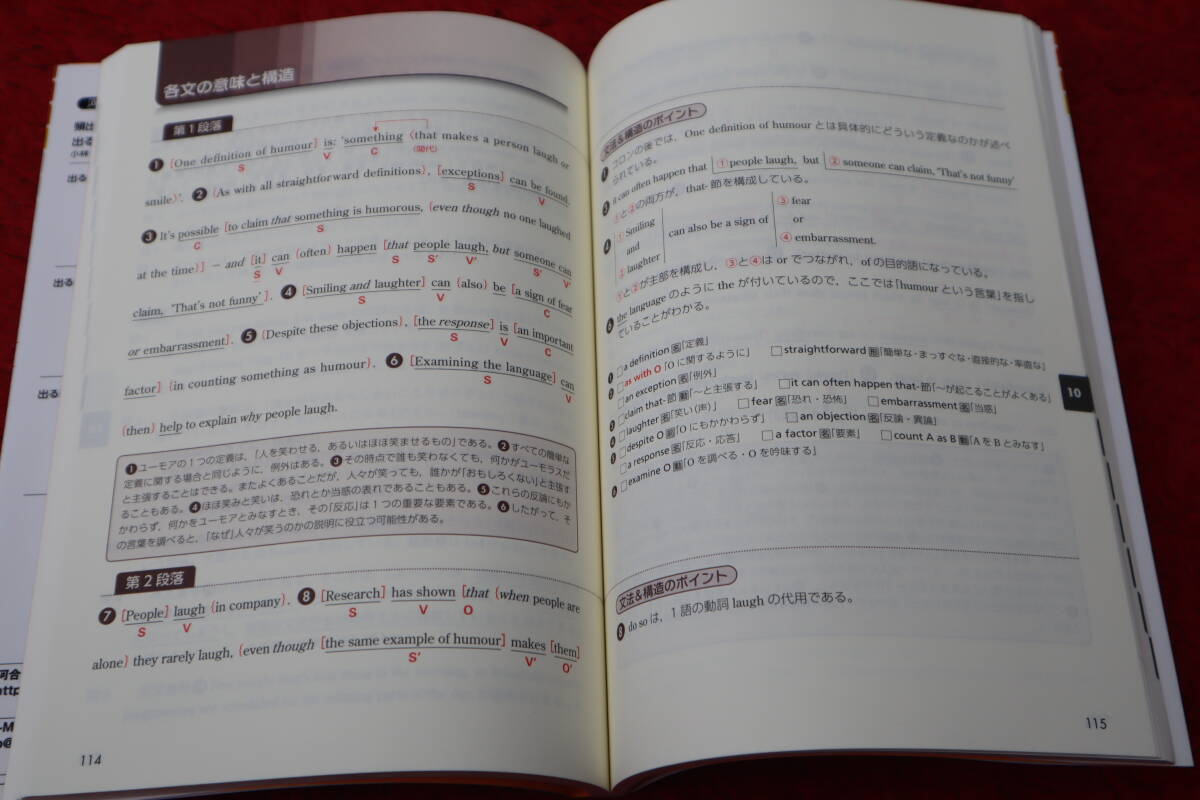 各文の意味と構造
第1段落
❶ [One definition of humour] is: 'something 〈that makes a person laugh or
S V C (関代)
smile〉'. ❷ (As with all straightforward definitions), [exceptions] can be found.
S V
❸ It's possible [to claim that something is humorous, (even though no one laughed
C S
at the time)] – and [it] can (often) happen [that people laugh, but someone can
S V S S' V' S' V'
claim, 'That's not funny']. ❹ [Smiling and laughter] can (also) be [a sign of fear
S V C
or embarrassment]. ❺ (Despite these objections), [the response] is [an important
S V C
factor] (in counting something as humour). ❻ [Examining the language] can
S V
(then) help to explain why people laugh.
❶ユーモアの1つの定義は,「人を笑わせる,あるいはほほ笑ませるもの」である。❷すべての簡単な
定義に関する場合と同じように,例外はある。❸その時点で誰も笑わなくても,何かがユーモラスだ
と主張することはできる。またよくあることだが,人々が笑っても,誰かが「おもしろくない」と主張す
ることもある。❹ほほ笑みと笑いは,恐れとか当惑の表れであることもある。❺これらの反論にもか
かわらず,何かをユーモアとみなすとき,その「反応」は1つの重要な要素である。❻したがって,そ
の言葉を調べると,「なぜ」人々が笑うのかの説明に役立つ可能性がある。
第2段落
❼ [People] laugh (in company). ❽ [Research] has shown [that (when people are
S V S V O
alone) they rarely laugh, (even though [the same example of humour] makes [them]
S' V' O'
114
文法&構造のポイント
❶ コロンの後では,One definition of humour とは具体的にどういう定義なのかが述べ
られている。
❸ it can often happen that ① people laugh, but ② someone can claim, 'That's not funny'
①と②の両方が,that-節を構成している。
❹ ① Smiling and ② laughter can also be a sign of ③ fear or ④ embarrassment.
①と②が主部を構成し,③と④は or でつながれ,of の目的語になっている。
❻ the language のように the が付いているので,ここでは「humour という言葉」を指し
ていることがわかる。
❶ □a definition 名「定義」
❷ □as with O「O に関するように」 □straightforward 形「簡単な・まっすぐな・直接的な・率直な」
□an exception 名「例外」
❸ □claim that-節 動「〜と主張する」 □it can often happen that-節「〜が起こることがよくある」
❹ □laughter 名「笑い(声)」 □fear 名「恐れ・恐怖」 □embarrassment 名「当惑」
❺ □despite O「O にもかかわらず」 □an objection 名「反論・異論」
□a response 名「反応・応答」 □a factor 名「要素」 □count A as B 動「A を B とみなす」
❻ □examine O 動「O を調べる・O を吟味する」
10
文法&構造のポイント
❽ do so は,1語の動詞 laugh の代用である。
115